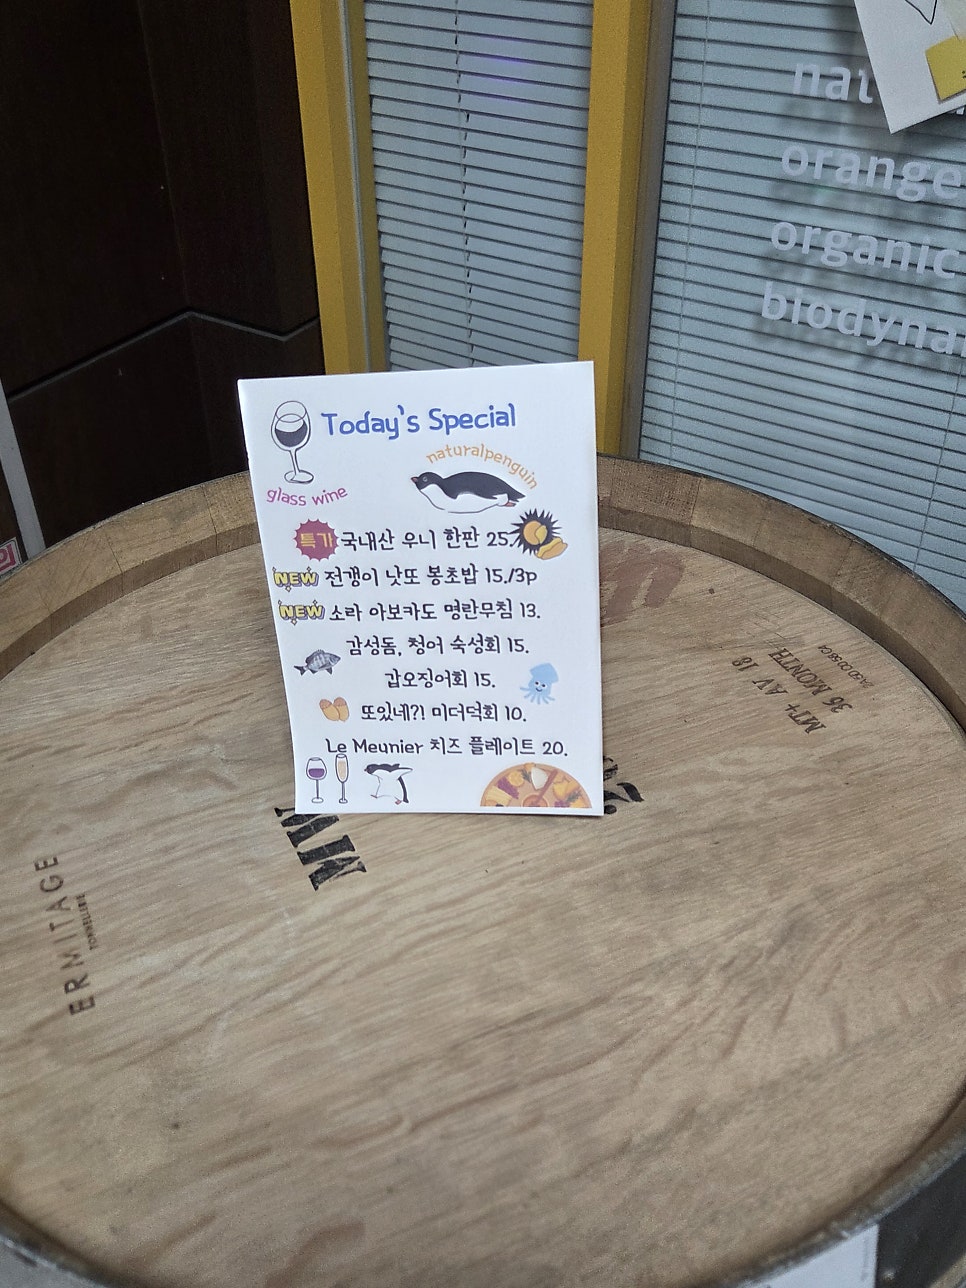 orange
organic
Today's Special
naturalpenguin
glass wine
특가 국내산 우니 한판 25.
NEW 전갱이 낫또 봉초밥 15./3p
NEW 소라 아보카도 명란무침 13.
감성돔, 청어 숙성회 15.
갑오징어회 15.
또있네?! 미더덕회 10.
Le Meunier 치즈 플레이트 20.
MT+ AV 18
36 MONTH
ERMITAGE
TONNELLERIE